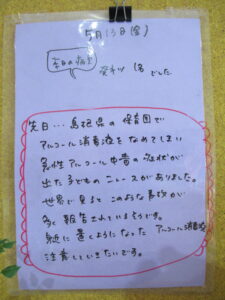 5月15日(金)
本日の病欠
発熱 1名 でした
先日… 島根県の保育園で
アルコール消毒液をなめてしまい
急性アルコール中毒の症状が
出た子どものニュースがありました。
世界で見るとこのような事故が
多く報告されているそうです。
身近に置くようになった アルコール消毒液
注意していきたいです。